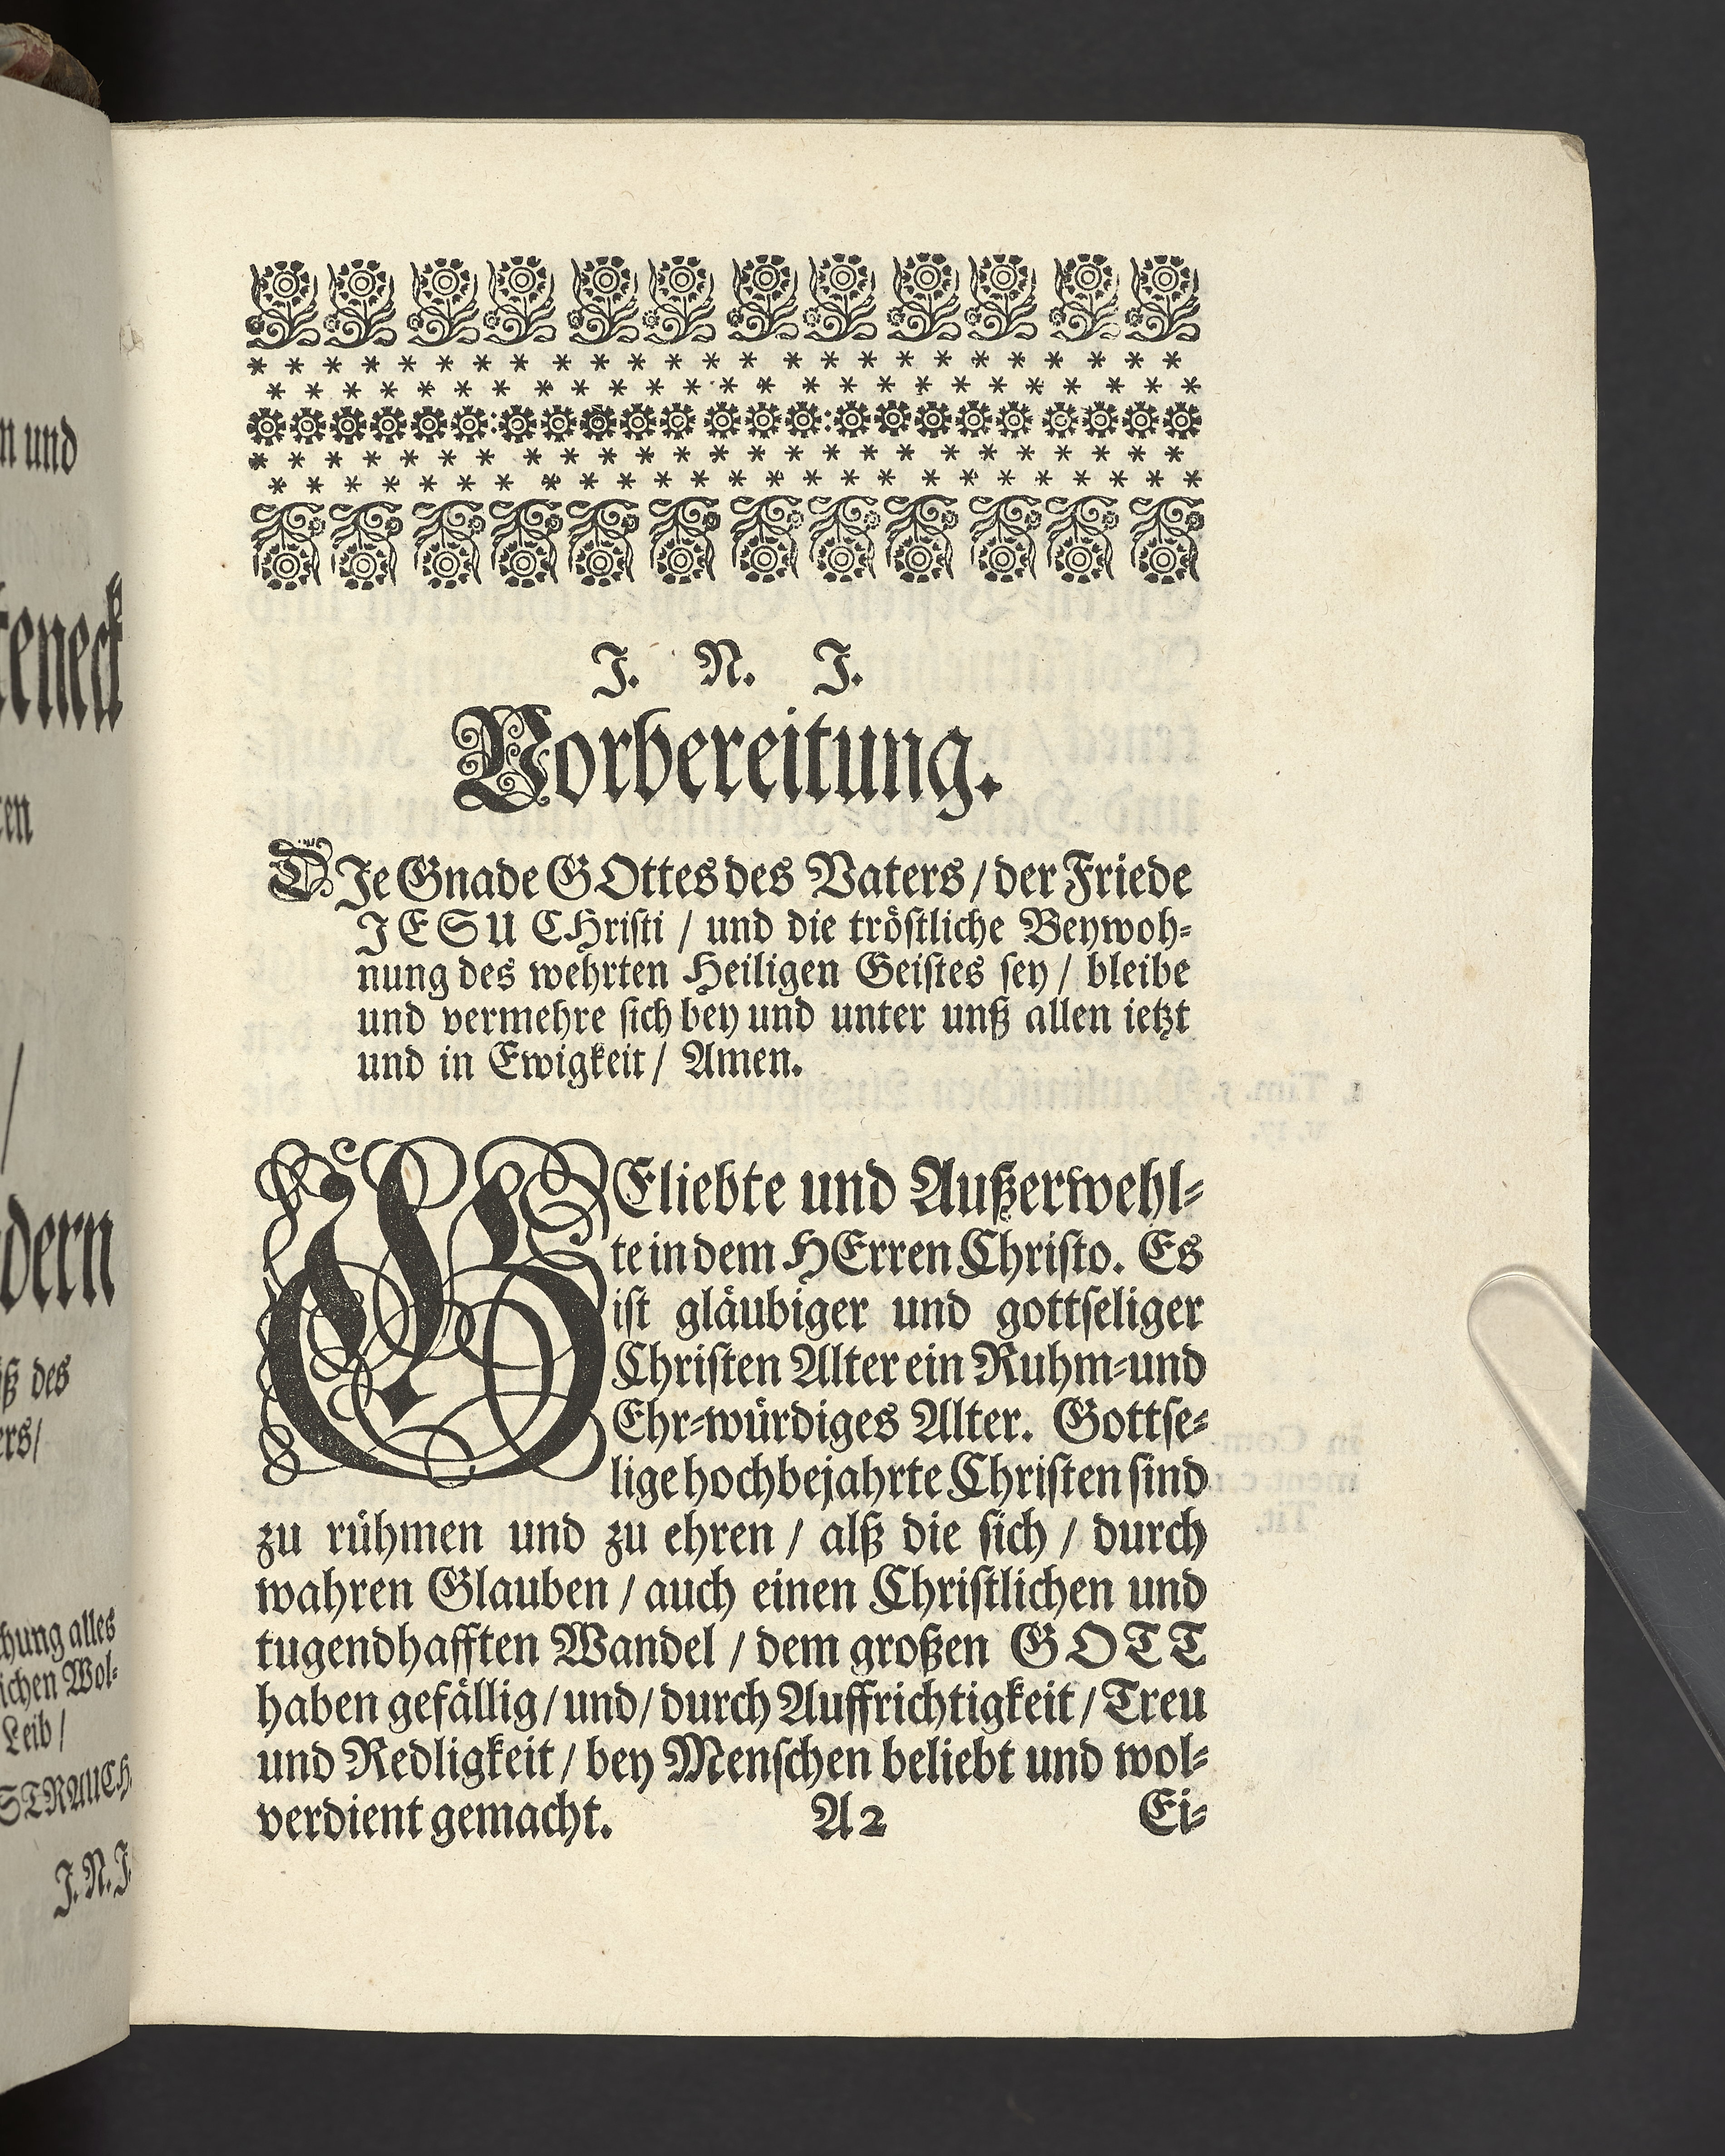 n und
eneck
en
/
dern
ß des
ers/
hung alles
ichen Wol-
Leib /
STRAUCH
J. N. J.
J. N. J.
Vorbereitung.
DJe Gnade GOttes des Vaters / der Friede
JESU CHristi / und die tröstliche Beywoh-
nung des wehrten Heiligen Geistes sey / bleibe
und vermehre sich bey und unter unß allen ietzt
und in Ewigkeit / Amen.
GEliebte und Außerwehl-
te in dem HErren Christo. Es
ist gläubiger und gottseliger
Christen Alter ein Ruhm-und
Ehr-würdiges Alter. Gottse-
lige hochbejahrte Christen sind
zu rühmen und zu ehren / alß die sich / durch
wahren Glauben / auch einen Christlichen und
tugendhafften Wandel / dem großen GOTT
haben gefällig / und / durch Auffrichtigkeit / Treu
und Redligkeit / bey Menschen beliebt und wol-
verdient gemacht.
A2
Ei-